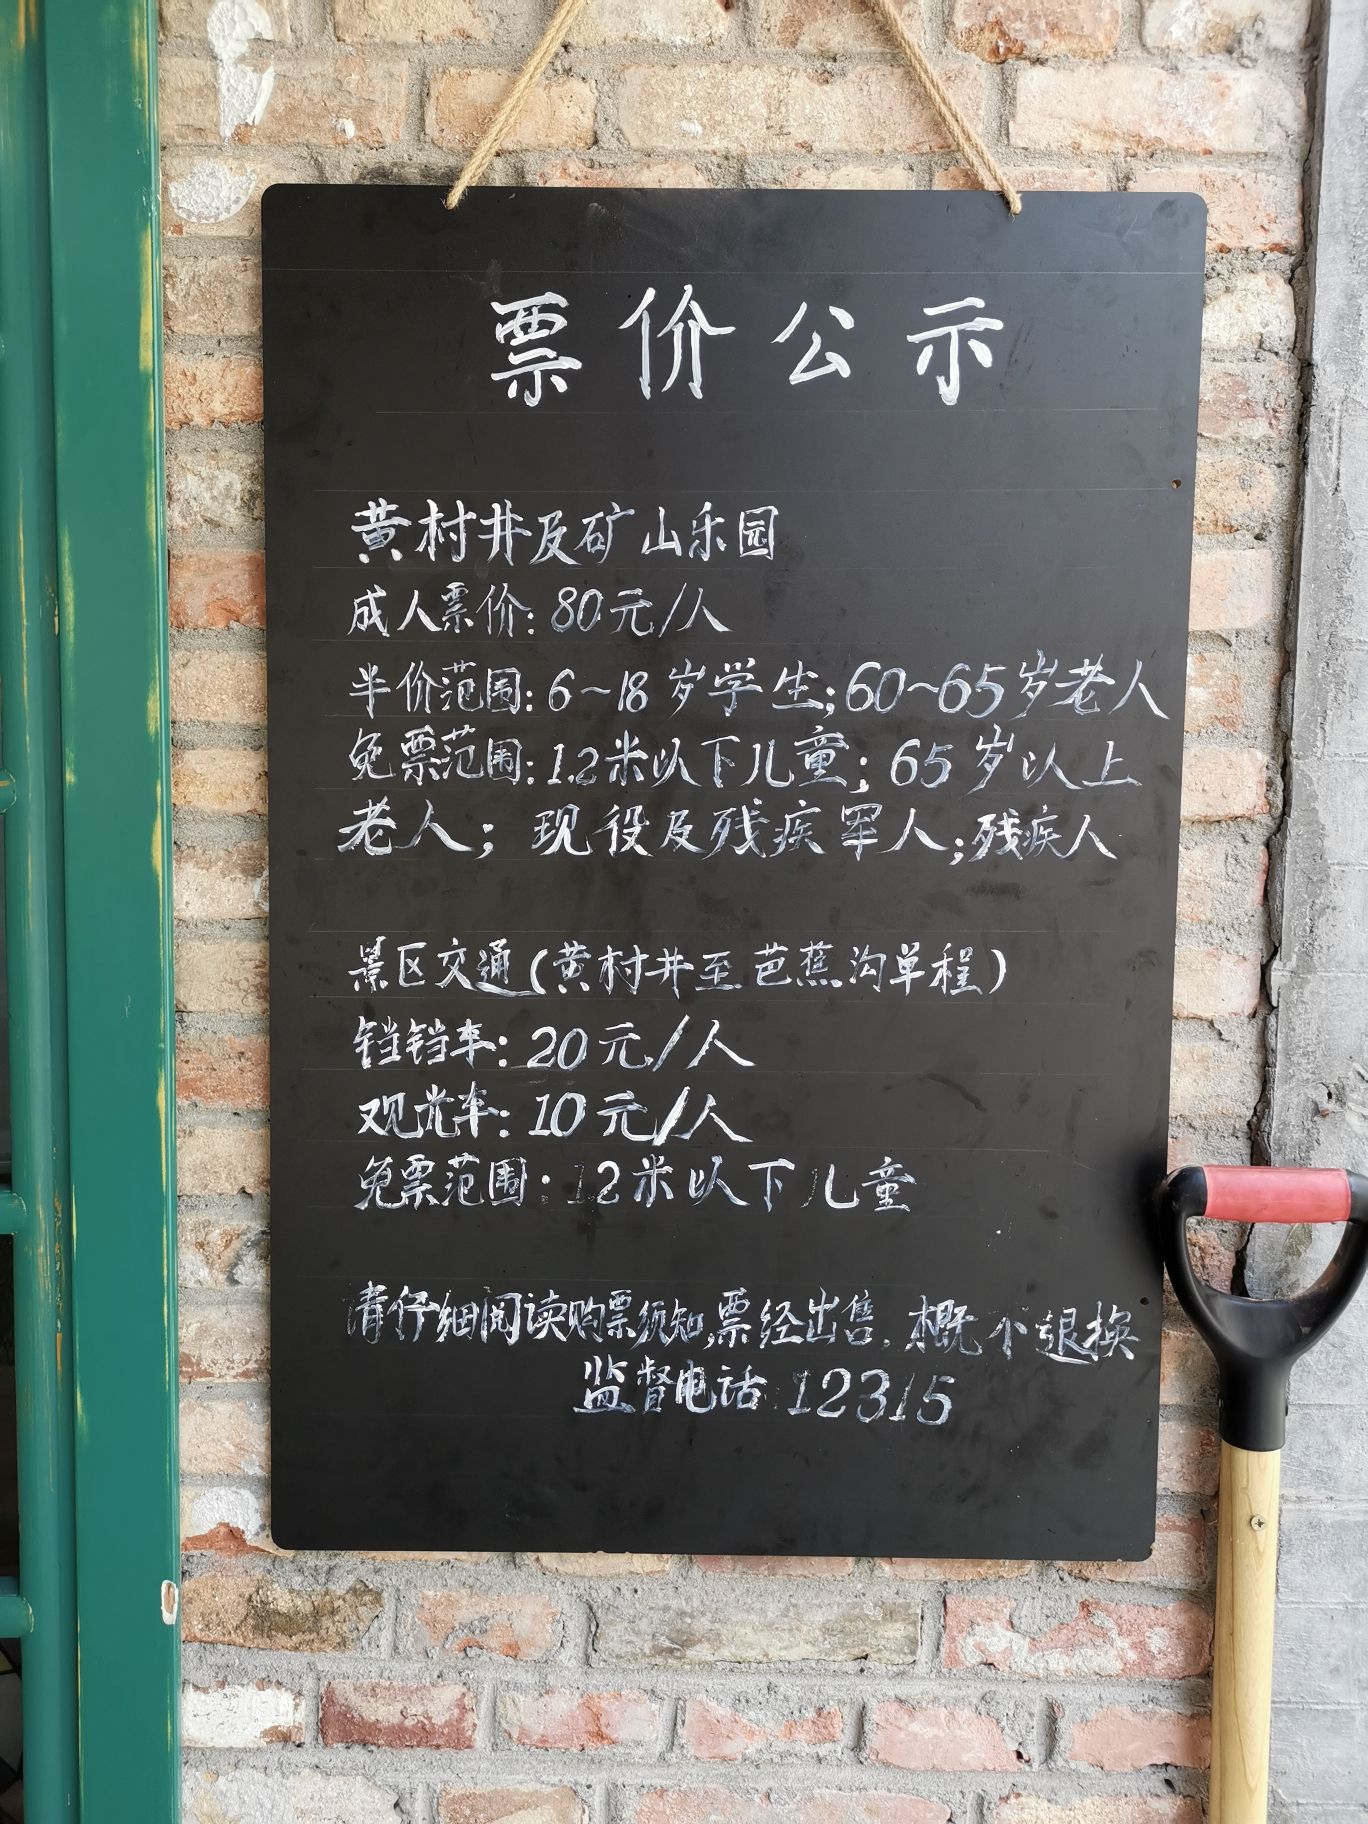 票价公示
黄村井及矿山乐园
成人票价:80元/人
半价范围:6~18岁学生;60~65岁老人
免票范围:1.2米以下儿童;65岁以上
老人;现役及残疾军人;残疾人
景区交通(黄村井至芭蕉沟单程)
铛铛车:20元/人
观光车:10元/人
免票范围:1.2米以下儿童
请仔细阅读购票须知,票经出售,概不退换
监督电话:12315